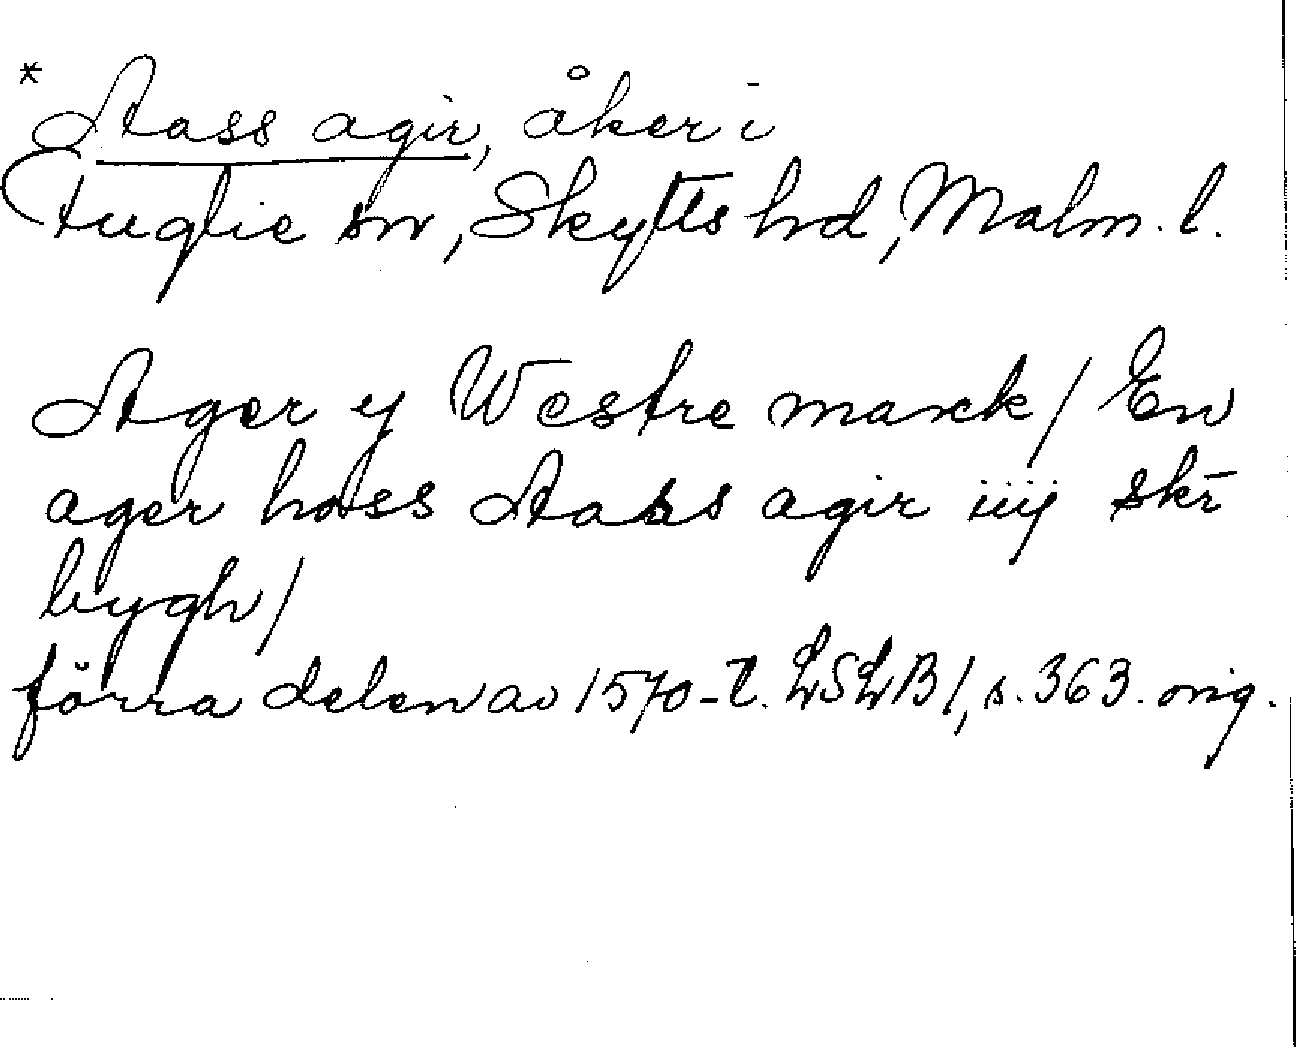 * Aass agir, åker i
Fuglie sn, Skytts hd, Malm. l.
Ager y Westre marck / En
ager hoss Aass agir iiij skr̄
bygh /
förra delen av 1570-t. LSLB 1, s. 363. orig.